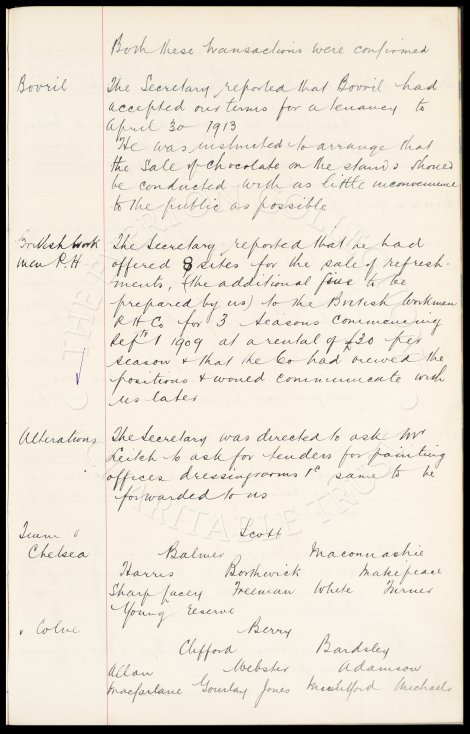 Both these transactions were confirmed
Bovril The Secretary reported that Bovril had
accepted our terms for a tenancy to
April 30 1913
He was instructed to arrange that
the Sale of Chocolate on the stands should
be conducted with as little inconvenience
to the public as possible
British Work The Secretary reported that he had
men P.H. offered 8 sites for the sale of refresh-
ments, (the additional five to be
prepared by us) to the British Workmen
P H Co for 3 seasons commencing
Sept 1 1909 at a rental of £30 per
season & that the Co had viewed the
positions & would communicate with
us later
Alterations The Secretary was directed to ask Mr
Leitch to ask for tenders for painting
offices dressingrooms &c same to be
forwarded to us
Team v Scott
Chelsea Balmer Maconnachie
Harris Borthwick Makepeace
Sharp Lacey Freeman White Turner
Young reserve
v Colne Berry
Clifford Bardsley
Allan Webster Adamson
Macfarlane Gourlay Jones Michaels
THE EVERTON
CHARITABLE TRUST